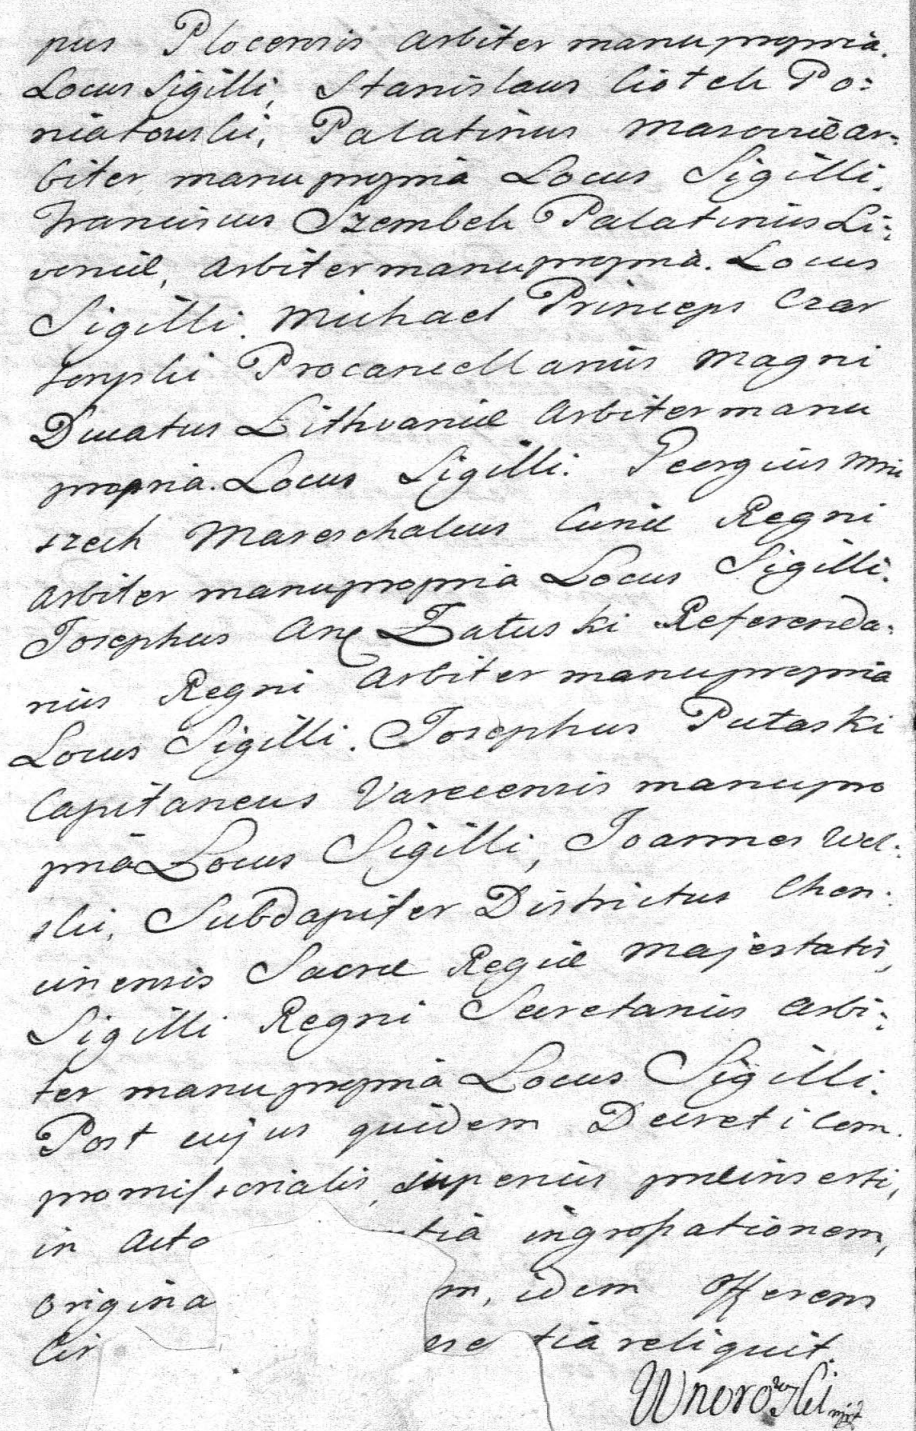 pus Plocensis Arbiter manu propria.
Locus Sigilli, Stanislaus Ciołek Po:
niatowski, Palatinus Masoviæ Ar:
biter manu propria Locus Sigilli.
Franciscus Szembek Palatinus Li:
voniæ, Arbiter manu propria. Locus
Sigilli. Michael Princeps Czar
toryski Procancellarius Magni
Ducatus Lithvaniæ Arbiter manu
propria. Locus Sigilli. Georgius Mni
szech Mareschalcus Curiæ Regni
Arbiter manu propria Locus Sigilli.
Josephus Załuski Referenda:
rius Regni Arbiter manu propria
Locus Sigilli. Josephus Pułaski
Capitaneus Varecensis manu pro
pria Locus Sigilli, Joannes Wel:
ski, Subdapifer Districtus Chen:
cinensis Sacræ Regiæ Majestatis,
Sigilli Regni Secretarius Arbi:
ter manu propria Locus Sigilli.
Post cujus quidem Decreti Com:
promissorialis, superius præinserti,
in Acta tia ingrossationem,
Origina m, idem Offerens
tia reliquit.
Wnorowski mpt